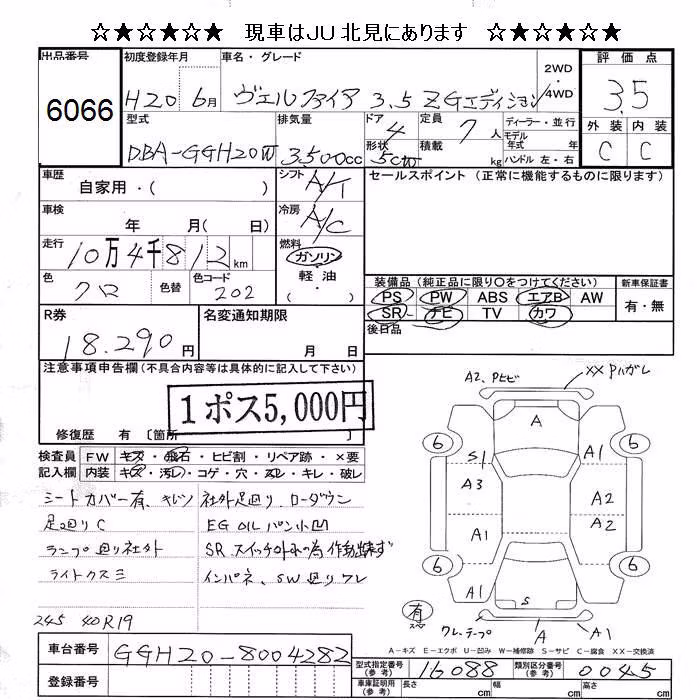 ☆★☆★☆★ 現車はJU北見にあります ☆★☆★☆★
出品番号 6066
初度登録年月 H20 6月
車名・グレード ヴェルファイア 3.5 Z Gエディション
2WD
4WD
評価点 3.5
外装 C 内装 C
型式 DBA-GGH20W
排気量 3500cc
ドア 4
形状 5CW
定員 7人
積載 kg
ディーラー・並行
モデル年式 年
ハンドル 左・右
車歴 自家用・( )
シフト A/T
車検 年 月(日)
冷房 A/C
走行 10万4千812km
燃料 ガソリン
軽油
・( )
色 クロ 色替 色コード 202
セールスポイント(正常に機能するものに限ります)
装備品(純正品に限り○をつけてください)
PS PW ABS エアB AW
SR ナビ TV カワ
新車保証書
有・無
後日品
R券 18.290円
名変通知期限 月 日
注意事項申告欄(不具合内容等は具体的に記入して下さい)
1ポス5,000円
修復歴 有 〔箇所 〕
検査員 FW キズ・飛石・ヒビ割・リペア跡・×要
記入欄 内装 キズ・汚レ・コゲ・穴・スレ・キレ・破レ
シートカバー有、キレソ
足回りC
ランプ回り社外
ライトクスミ
245 40R19
社外足回り、ローダウン
EG OILパン小凹
SRスイッチ外れの為作動出来ず
インパネ、SW回りワレ
A2、Pヒビ
××Pハガレ
A
6 6
S1 A1
A3 A2
A2
A1
6 6
A1
S
有
スペア
ワレ、テープ
A
A1
A-キズ E-エクボ U-凹み W-補修跡 S-サビ C-腐食 XX-交換済
車台番号 GGH20-8004282
登録番号
型式指定番号(参考) 16088
類別区分番号(参考) 0045
車庫証明用(参考) 長さ cm 幅 cm 高さ cm